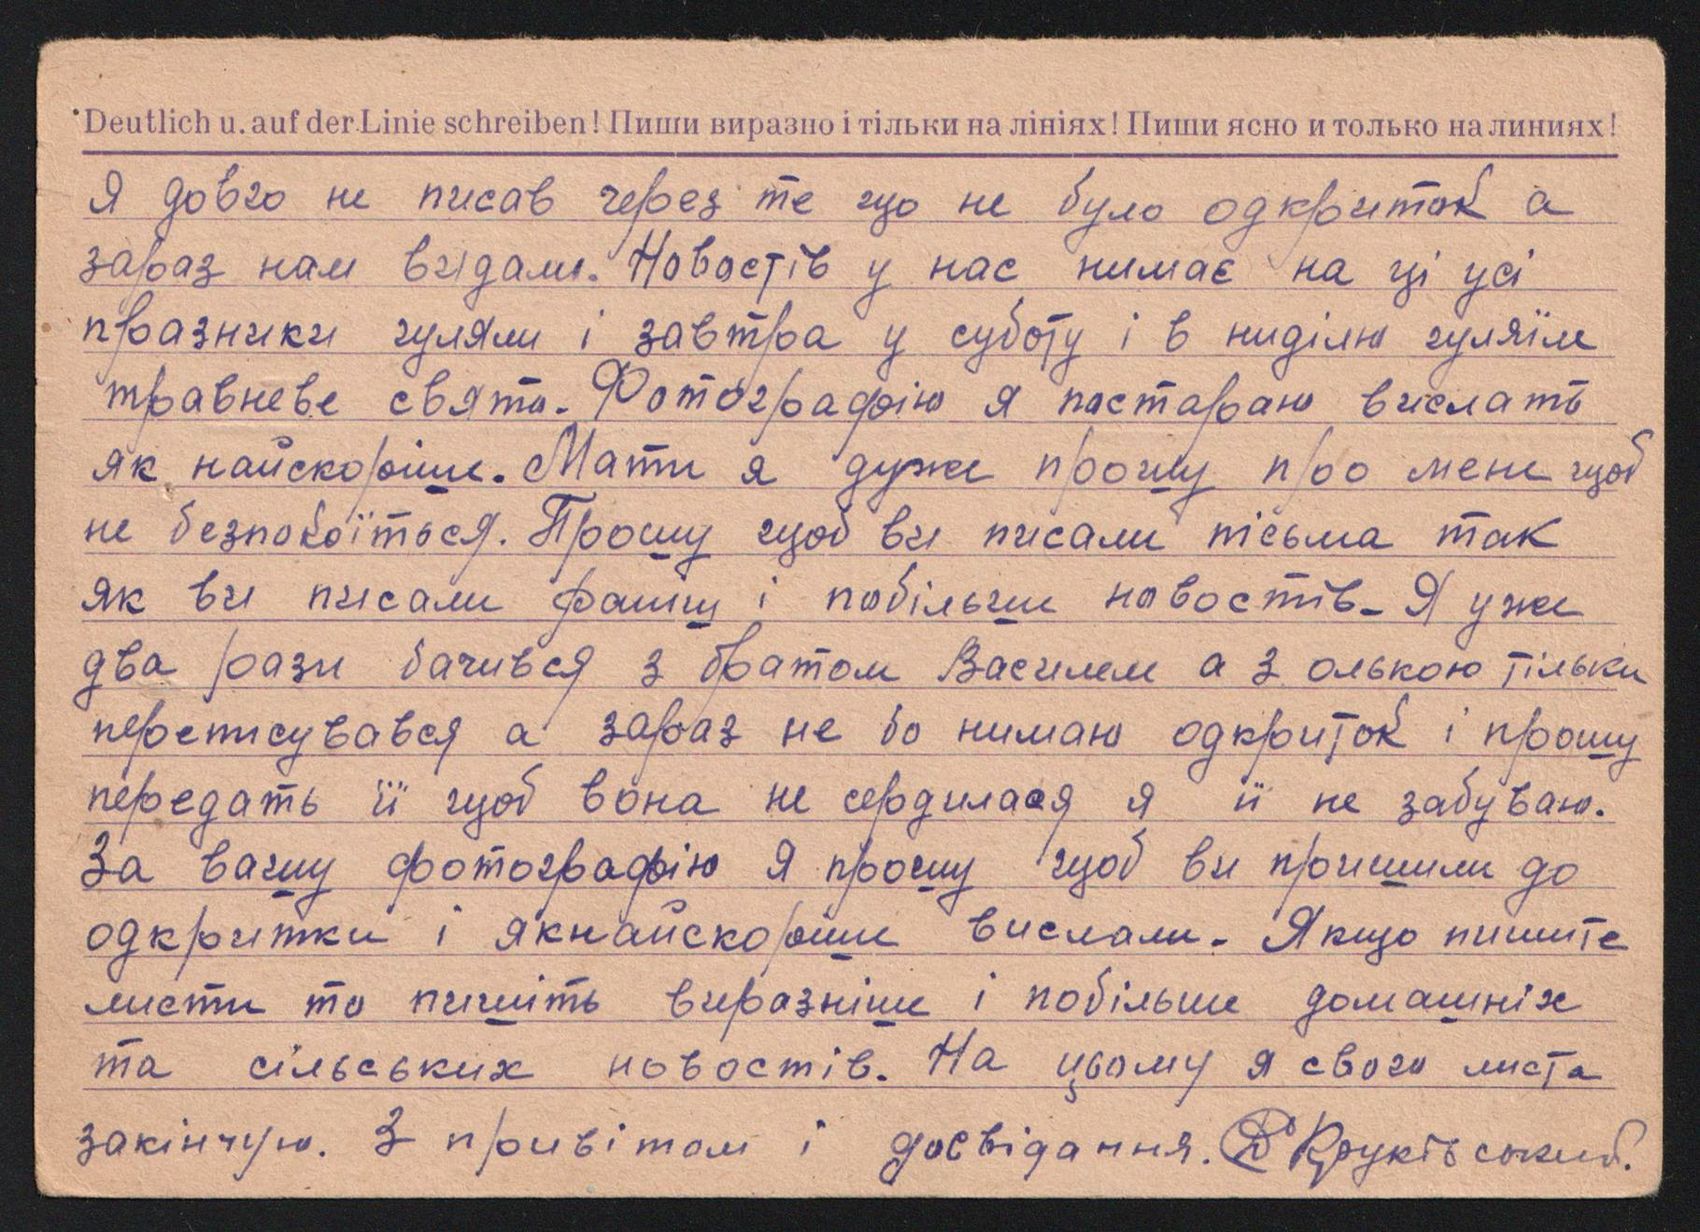 Deutlich u. auf der Linie schreiben! Пиши виразно і тільки на лініях! Пиши ясно и только на линиях!
Я довго не писав через те що не було одкриток а
зараз нам видали. Новостів у нас нимає на ці усі
празники гуляли і завтра у суботу і в ниділю гуляїм
травневе свято. Фотографію я постараю вислать
як найскоріши. Мати я дужи прошу про мени щоб
не безпокоїться. Прошу щоб ви писали пісьма так
як ви писали раниш і побільши новостів. Я ужи
два рази бачився з братом Василем а з олькою тільки
переписувався а зараз не бо нимаю одкриток і прошу
передать її щоб вона не сердилася я її не забуваю.
За вашу фотографію я прошу щоб ви пришили до
одкритки і якнайскоріши вислали. Якщо пишите
листи то пишіть виразніши і побільше домашніх
та сільських новостів. На цьому я свого листа
закінчую. З привітом і досвідання.